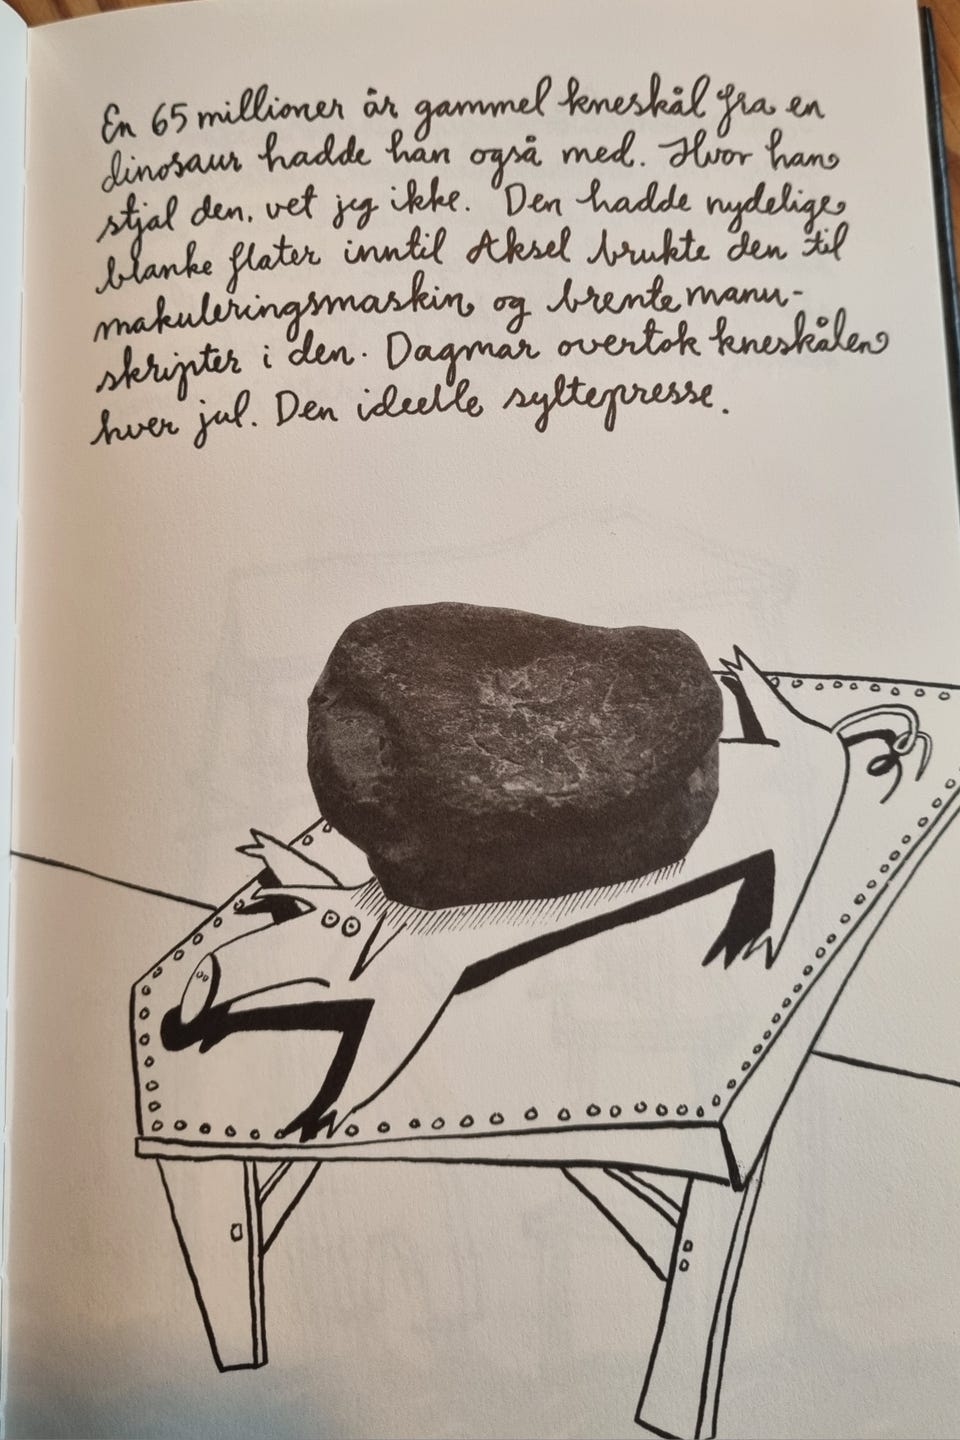 En 65 millioner år gammel kneskål fra en
dinosaur hadde han også med. Hvor han
stjal den, vet jeg ikke. Den hadde nydelige
blanke flater inntil Aksel brukte den til
makuleringsmaskin og brente manu-
skripter i den. Dagmar overtok kneskålen
hver jul. Den ideelle syltepresse.